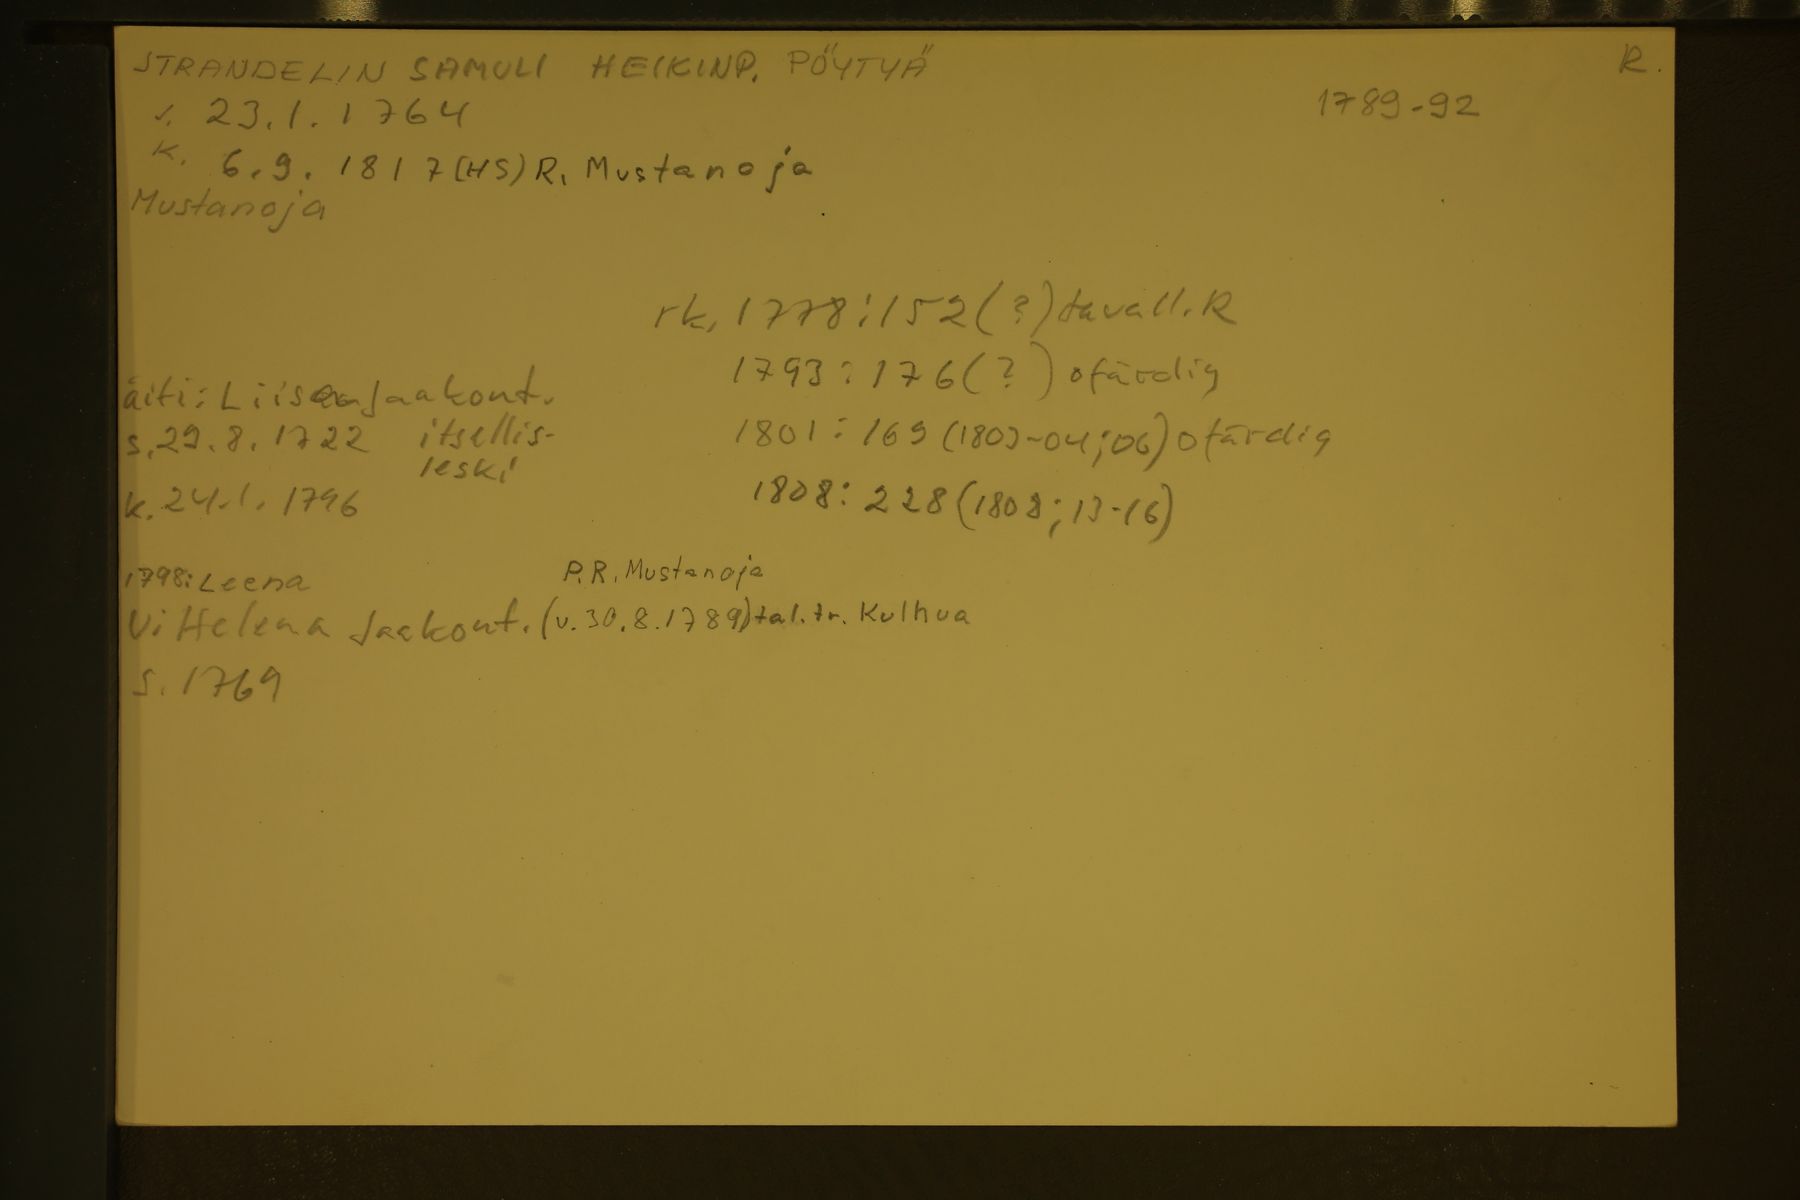 STRANDELIN SAMULI HEIKINP. PÖYTYÄ R.
s. 23.1.1764 1789-92
k. 6.9.1817 (HS) R. Mustanoja
Mustanoja
rk, 1778:152 (?) tavall. R
1793:176 (?) ofärdig
äiti: Liisa Jaakont.
1801:169 (1803-04;06) ofärdig
s. 29.8.1722 itsellis-
leski
k. 24.1.1796
1808:228 (1808;13-16)
1798: Leena P.R. Mustanoja
Vi Helena Jaakont. (v. 30.8.1789) tal.tr. Kulhua
s. 1769